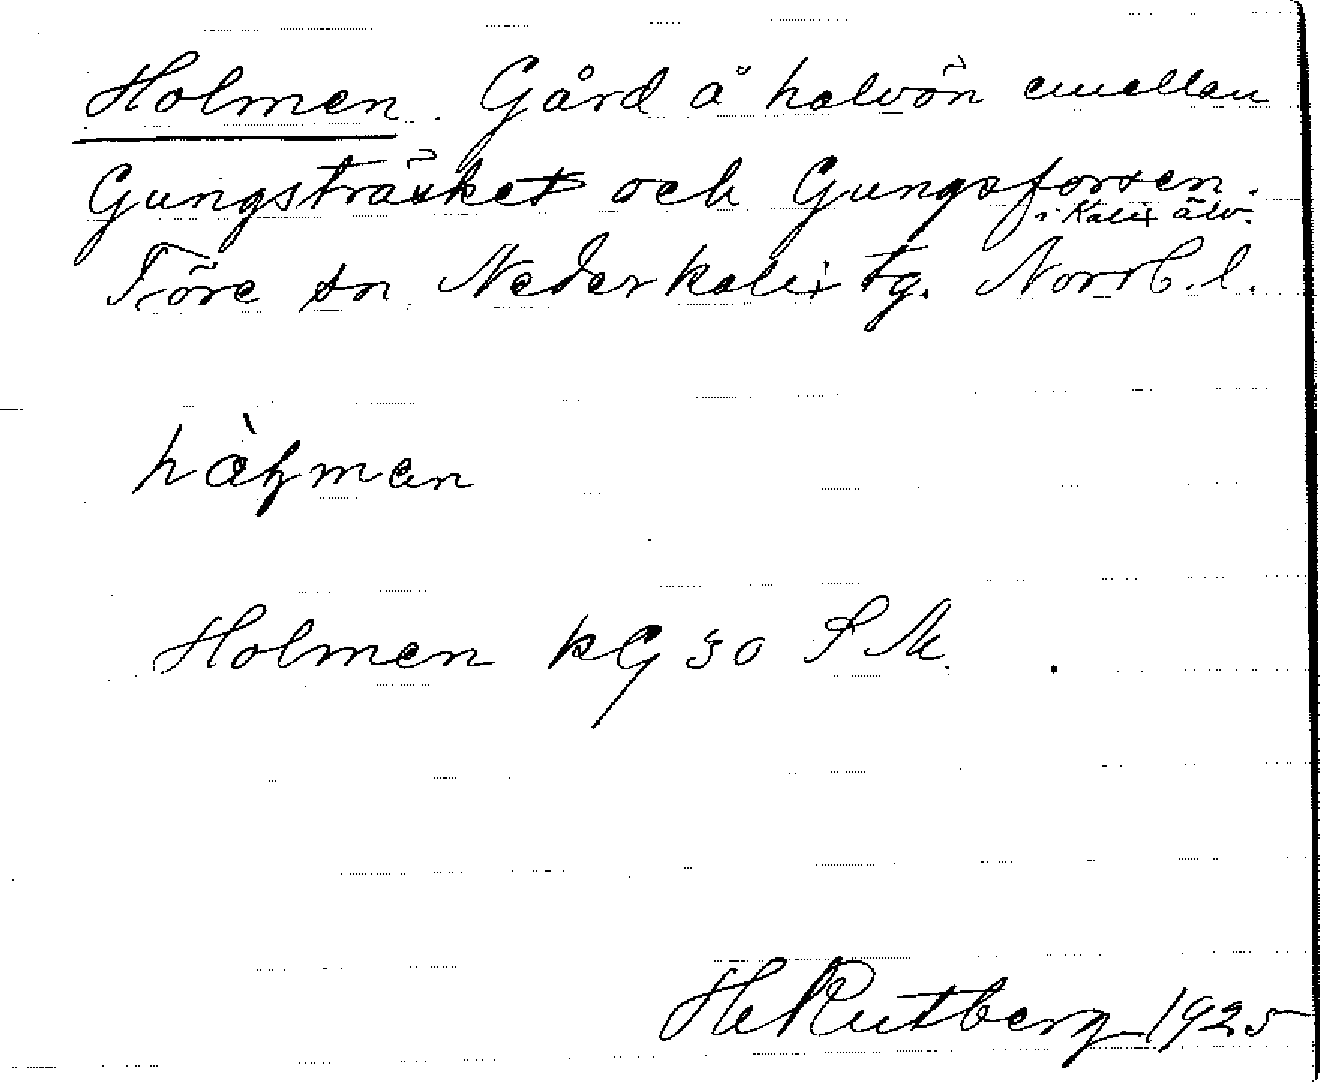 Holmen. Gård å halvön emellan
Gungsträsket och Gungsforsen.
i Kalix älv.
Töre sn Nederkalix tg. Norrb. l.
hàɫman
Holmen kG 30 S M.
H Rutberg 1925